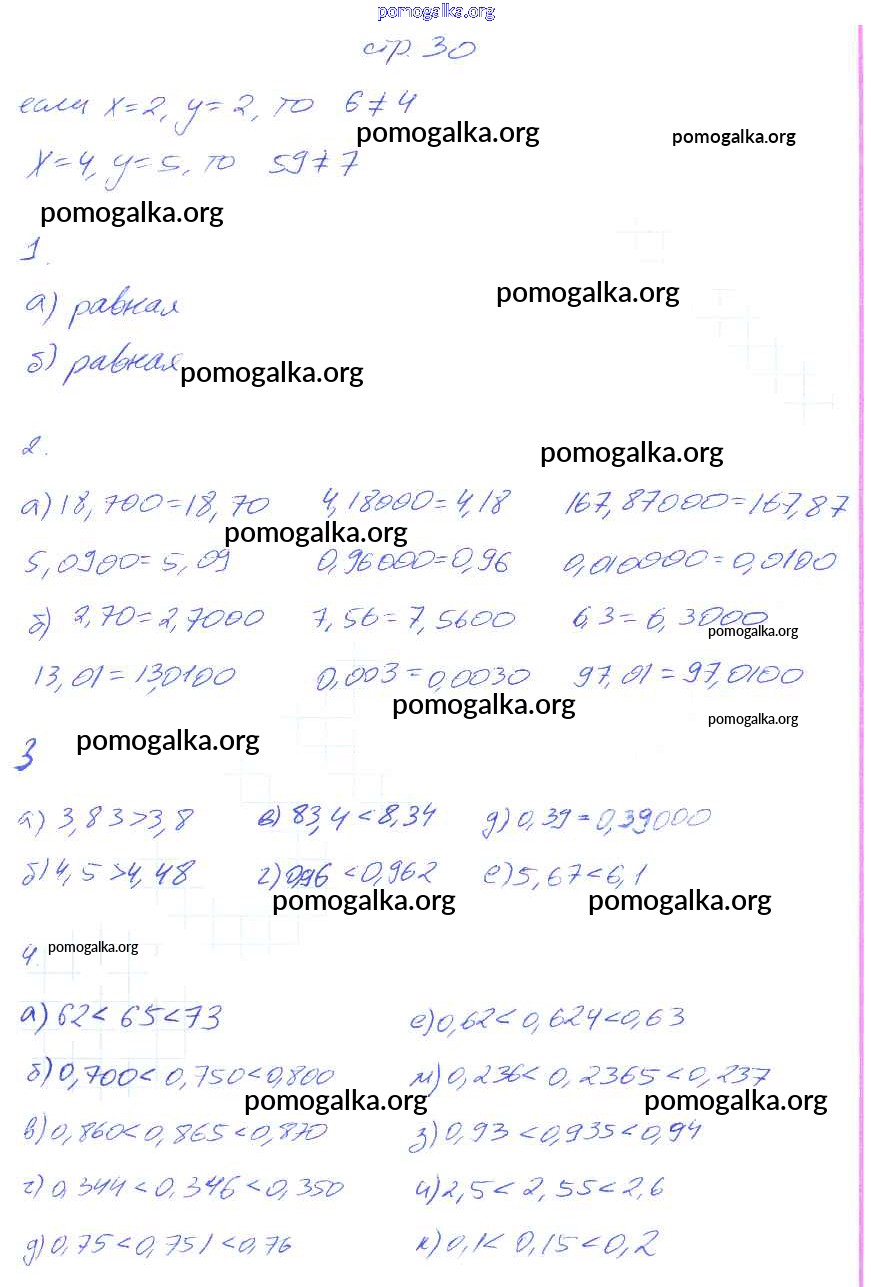 pomogalka.org
стр. 30
если x=2, y=2, то 6≠4
pomogalka.org pomogalka.org
x=4, y=5, то 59≠7
pomogalka.org
1.
а) равная
pomogalka.org
б) равная
pomogalka.org
2.
pomogalka.org
а) 18,700=18,70 4,18000=4,18 167,87000=167,87
pomogalka.org
5,0900=5,09 0,96000=0,96 0,010000=0,0100
б) 2,70=2,7000 7,56=7,5600 6,3=6,3000
pomogalka.org
13,01=13,0100 0,003=0,0030 97,01=97,0100
pomogalka.org pomogalka.org
3 pomogalka.org
а) 3,83>3,8 в) 83,4<8,34 д) 0,39=0,39000
б) 4,5>4,48 г) 0,96<0,962 е) 5,67<6,1
pomogalka.org pomogalka.org
4. pomogalka.org
а) 62<65<73 е) 0,62<0,624<0,63
б) 0,700<0,750<0,800 м) 0,236<0,2365<0,237
pomogalka.org pomogalka.org
в) 0,860<0,865<0,870 з) 0,93<0,935<0,94
г) 0,344<0,346<0,350 и) 2,5<2,55<2,6
д) 0,75<0,751<0,76 к) 0,1<0,15<0,2